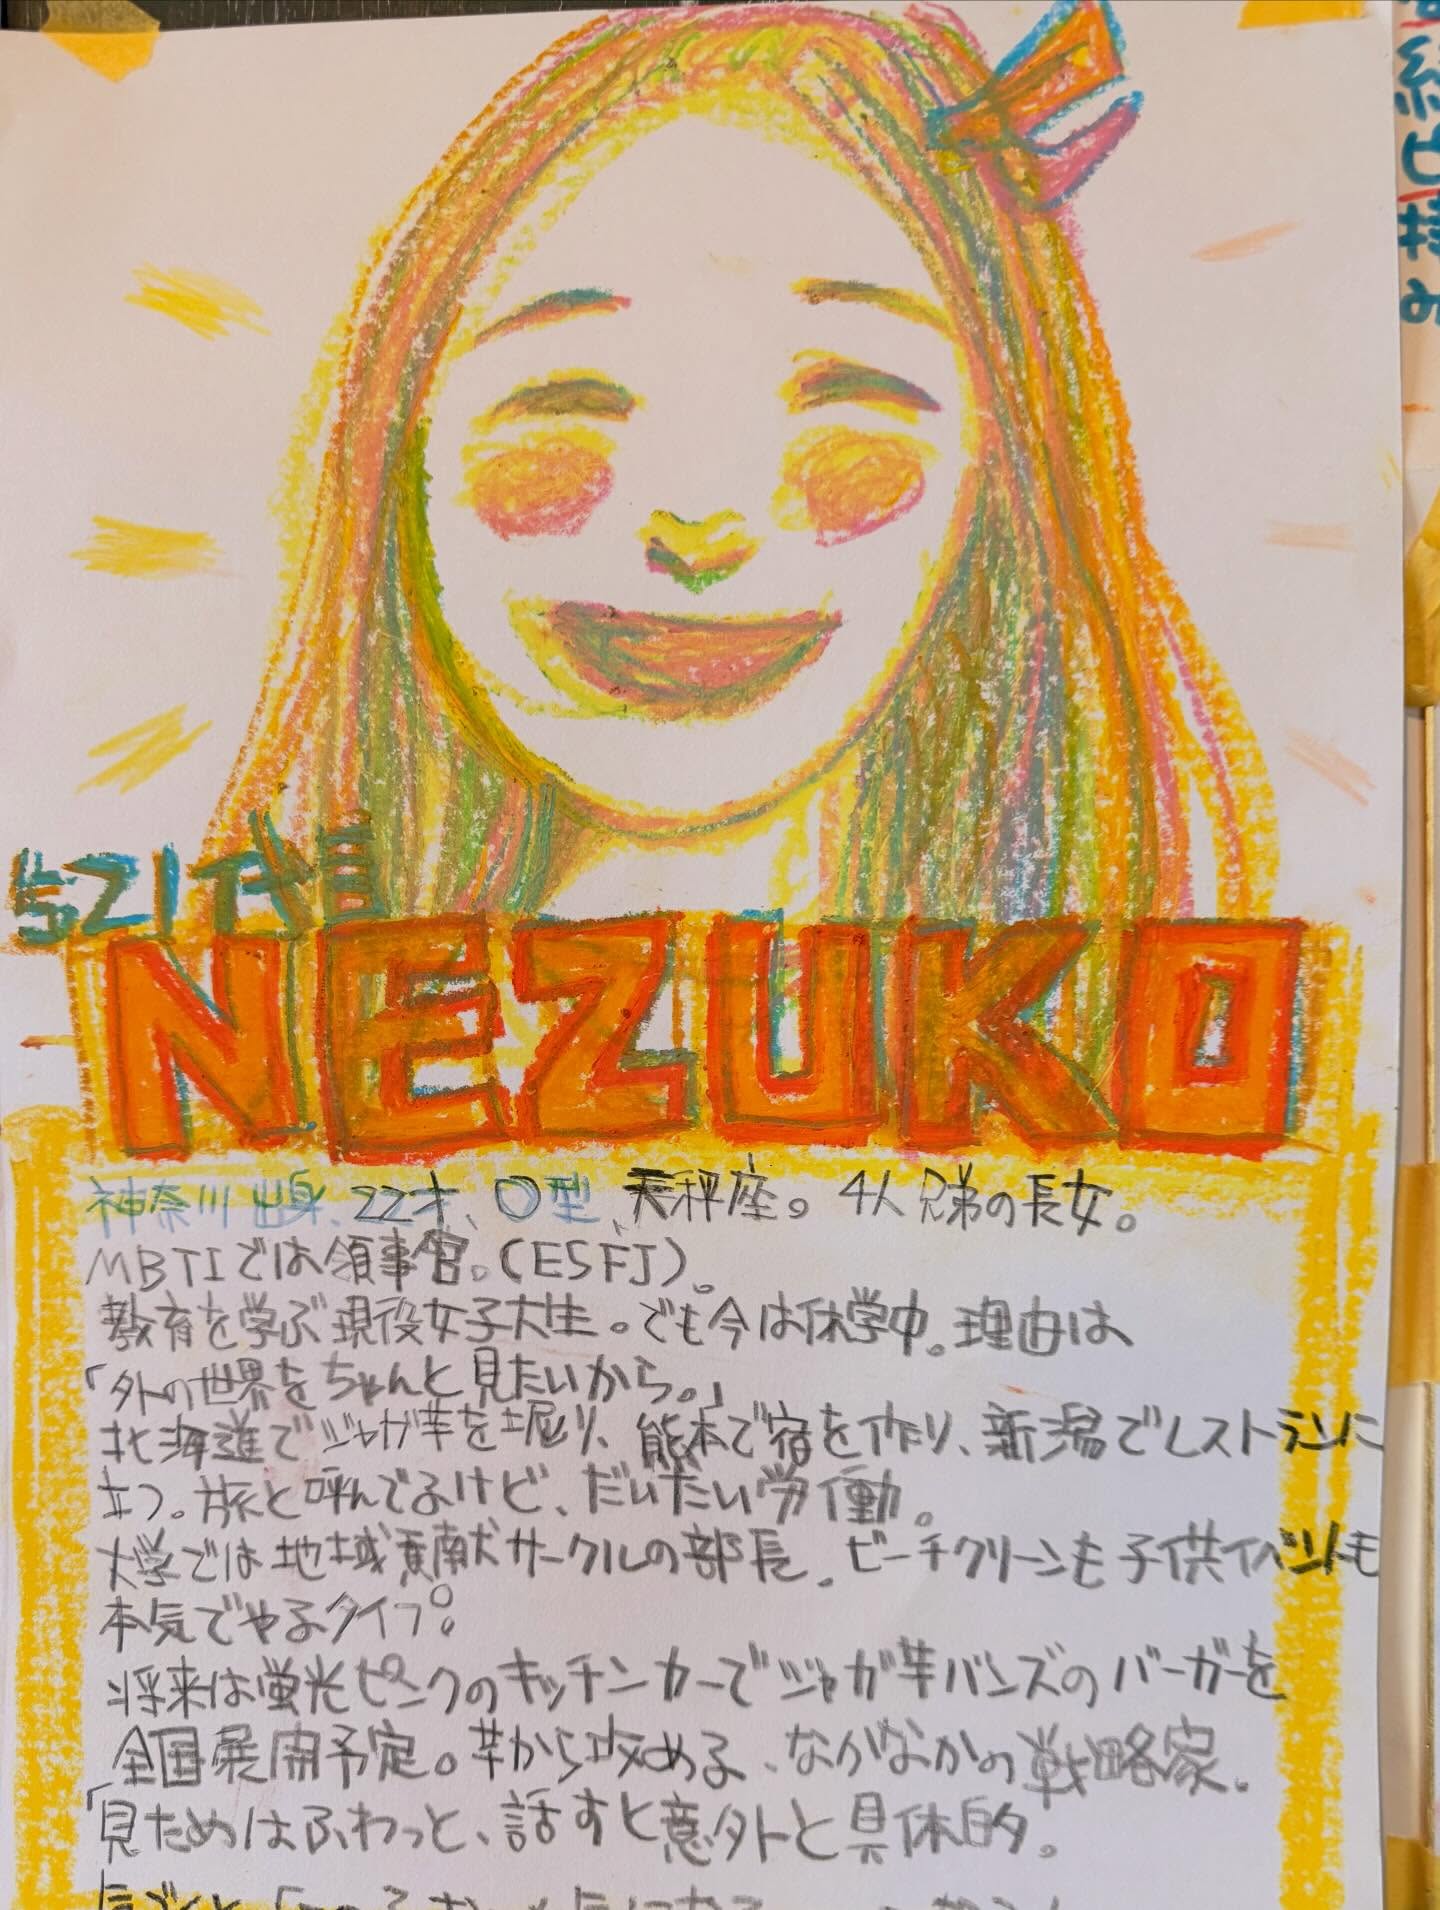 521代目
NEZUKO
神奈川出身、22才、O型、天秤座。4人兄弟の長女。
MBTIでは領事官。(ESFJ)。
教育を学ぶ現役女子大生。でも今は休学中。理由は
「外の世界をちゃんと見たいから。」
北海道でジャガ芋を掘り、熊本で宿を作り、新潟でレストランに
立つ。旅と呼んでるけど、だいたい労働。
大学では地域貢献サークルの部長。ビーチクリーンも子供イベントも
本気でやるタイプ。
将来は蛍光ピンクのキッチンカーでジャガ芋バンズのバーガーを
全国展開予定。芋から攻める、なかなかの戦略家。
「見ためはふわっと、話すと意外と具体的。